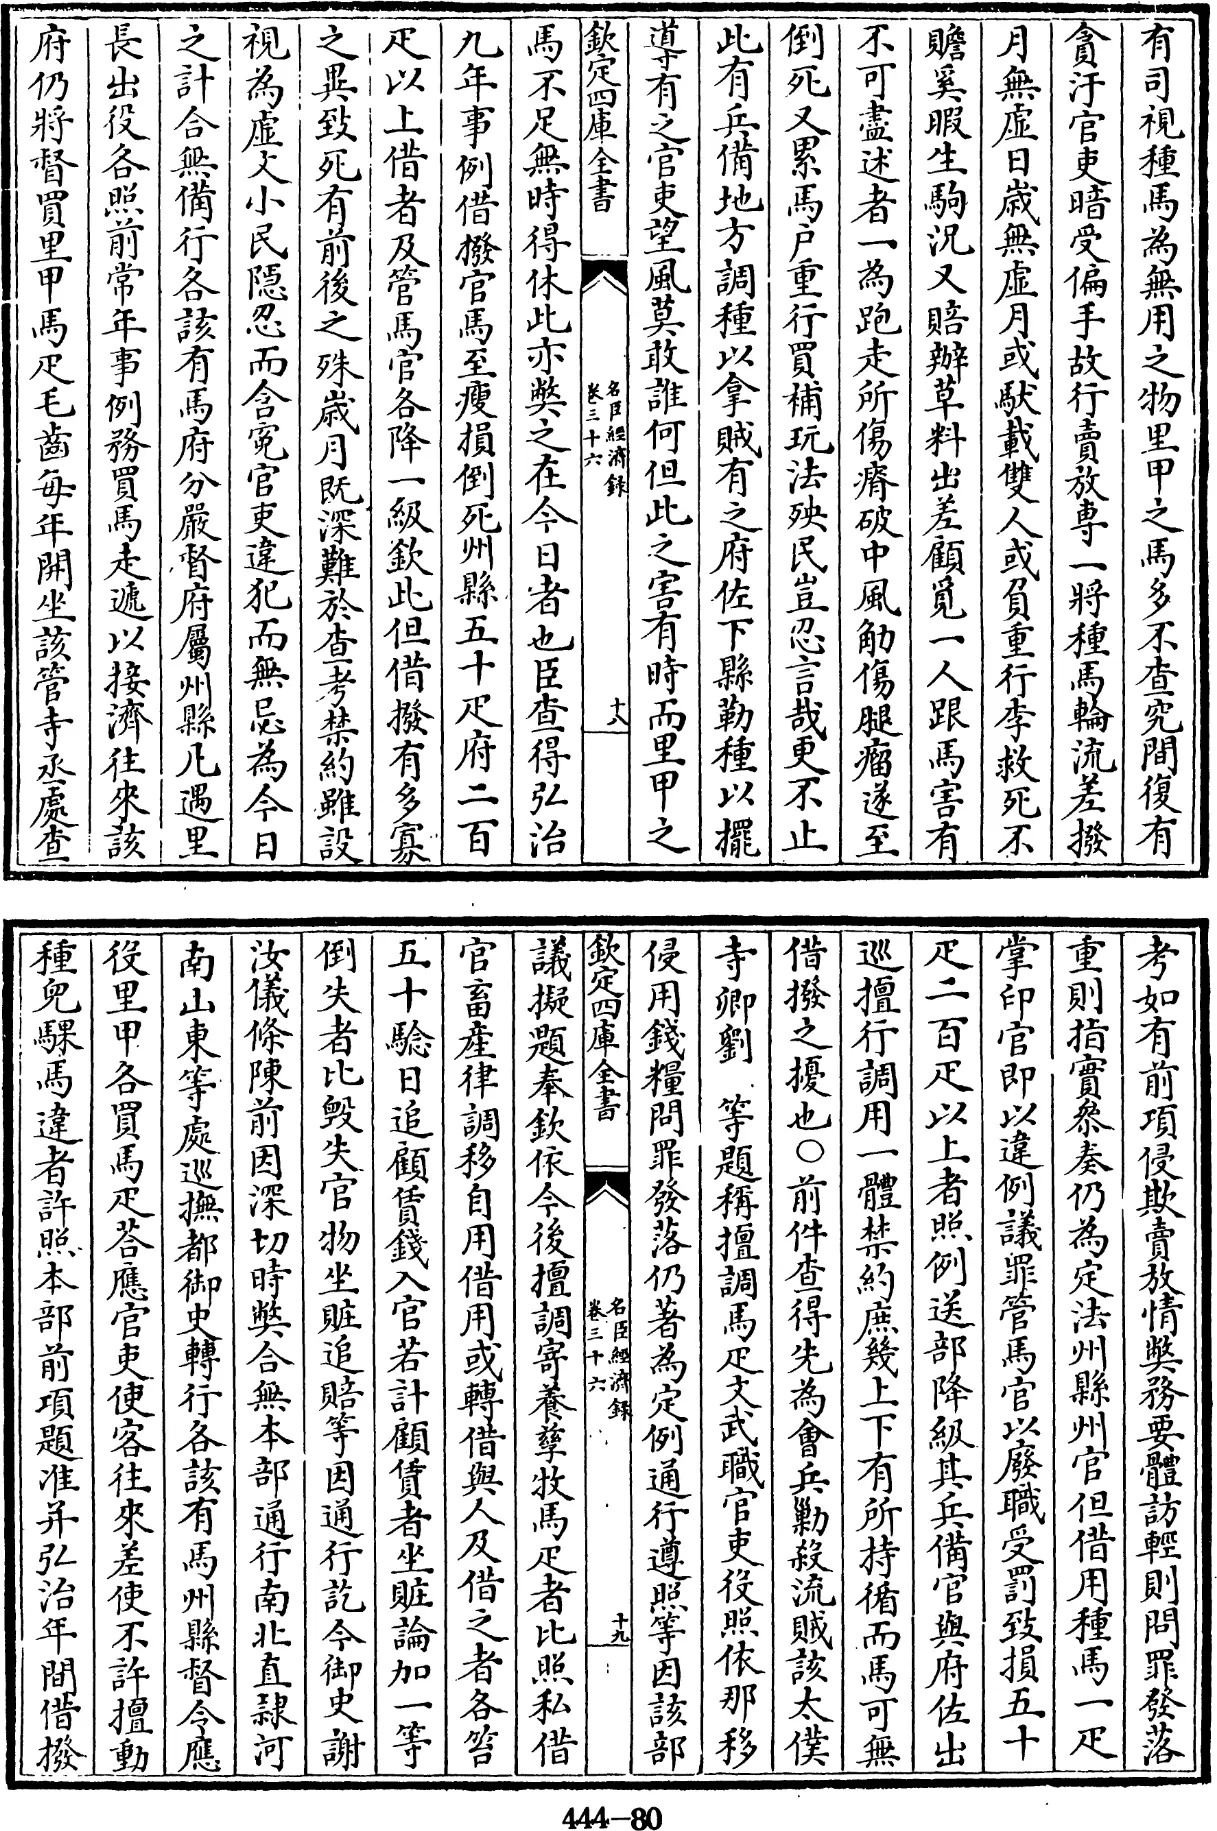 有司視種馬為無用之物里甲之馬多不查究間復有
貪汙官吏暗受偏手故行賣放專一將種馬輪流差撥
月無虛日歲無虛月或馱載雙人或負重行李救死不
贍奚暇生駒況又賠辦草料出差顧覓一人跟馬害有
不可盡述者一為跑走所傷瘠破中風觔傷腿瘤遂至
倒死又累馬户重行買補玩法殃民豈忍言哉更不止
此有兵備地方調種以拿賊有之府佐下縣勒種以擺
導有之官吏望風莫敢誰何但此之害有時而里甲之
欽定四庫全書
名臣經濟録
卷三十六
十八
馬不足無時得休此亦弊之在今日者也臣查得弘治
九年事例借撥官馬至瘦損倒死州縣五十疋府二百
疋以上借者及管馬官各降一級欽此但借撥有多寡
之異致死有前後之殊歲月既深難於查考禁約雖設
視為虛文小民隱忍而含寃官吏違犯而無忌為今日
之計合無備行各該有馬府分嚴督府屬州縣凡遇里
長出役各照前常年事例務買馬走遞以接濟往來該
府仍將督買里甲馬疋毛齒每年開坐該管寺丞處查
考如有前項侵欺賣放情弊務要體訪輕則問罪發落
重則指實叅奏仍為定法州縣州官但借用種馬一疋
掌印官即以違例議罪管馬官以廢職受罰致損五十
疋二百疋以上者照例送部降級其兵備官與府佐出
巡擅行調用一體禁約庶幾上下有所持循而馬可無
借撥之擾也○前件查得先為會兵勦殺流賊該太僕
寺卿劉 等題稱擅調馬疋文武職官吏役照依那移
侵用錢糧問罪發落仍著為定例通行遵照等因該部
欽定四庫全書
名臣經濟録
卷三十六
十九
議擬題奉欽依今後擅調寄養孳牧馬疋者比照私借
官畜産律調移自用借用或轉借與人及借之者各笞
五十驗日追顧賃錢入官若計顧賃者坐贓論加一等
倒失者比毁失官物坐贓追賠等因通行訖今御史謝
汝儀條陳前因深切時弊合無本部通行南北直隸河
南山東等處巡撫都御史轉行各該有馬州縣督令應
役里甲各買馬疋荅應官吏使客往來差使不許擅動
種兒騍馬違者許照本部前項題准并弘治年間借撥
444-80